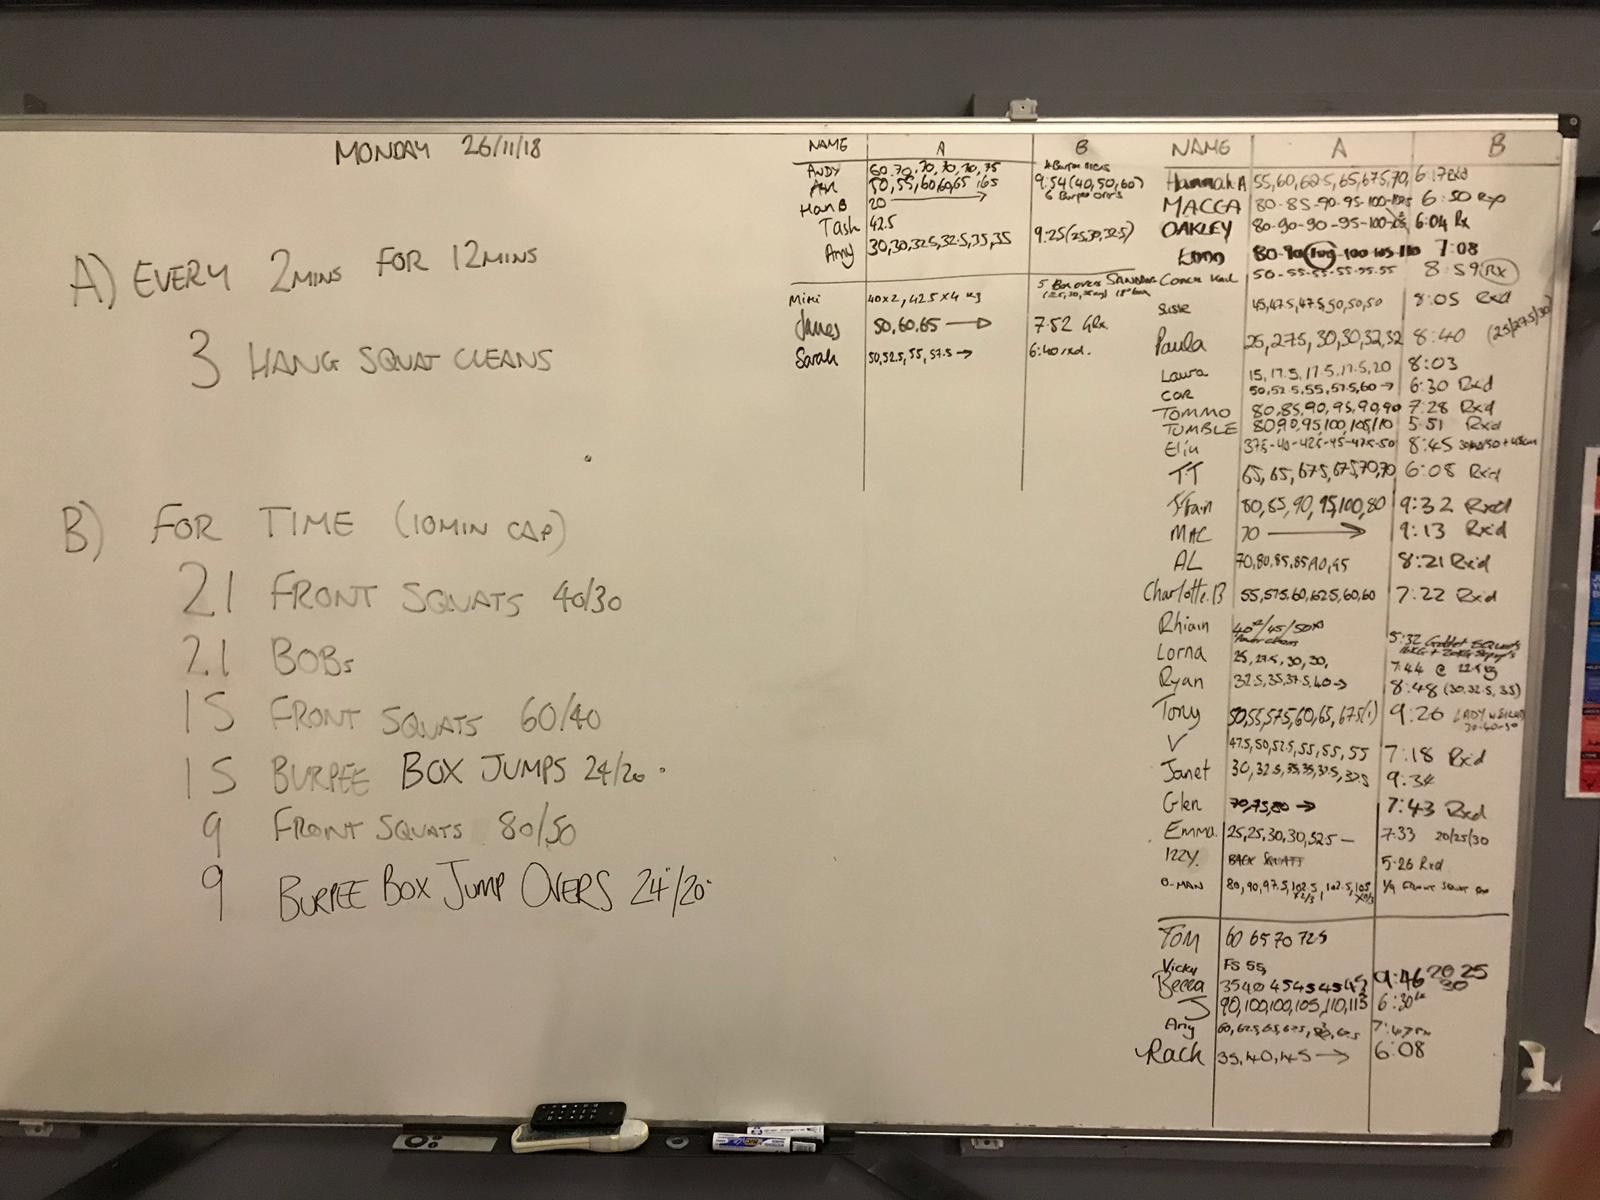 MONDAY 26/11/18
A) EVERY 2MINS FOR 12MINS
3 HANG SQUAT CLEANS
B) FOR TIME (10MIN CAP)
21 FRONT SQUATS 40/30
21 BOBs
15 FRONT SQUATS 60/40
15 BURPEE BOX JUMPS 24/20"
9 FRONT SQUATS 80/50
9 BURPEE BOX JUMP OVERS 24"/20"
NAME A B
ANDY 60,70,70,70,70,75
50,55,60,60,65 9.54 (40,50,60)
Han B 20
Tash 42.5
Amy 30,30,32.5,32.5,35,35 9.25 (25,30,32.5)
Mimi 40x2, 42.5x4 kg
James 50,60,65 → 7.52
Sarah 50,52.5,55,57.5 → 6:40 rxd.
NAME A B
Hannah A 55,60,62.5,65,67.5,70, 6:17 Rxd
MACCA 80-85-90-95-100-105 6:50
OAKLEY 80-90-90-95-100-105 6:04 Rx
7:08
50-55-55-55-55-55 8:59 Rx
Susie 45,47.5,47.5,50,50,50 8:05 Rxd
Paula 25,27.5,30,30,32,32 8:40 (25/27.5/30)
Laura 15,17.5,17.5,17.5,20 8:03
COR 50,52.5,55,57.5,60 → 6:30 Rxd
TOMMO 80,85,90,95,90,90 7:28 Rxd
TUMBLE 80,90,95,100,105,110 5:51 Rxd
37.5-40-42.5-45-47.5-50 8:45
TT 65,65,67.5,67.5,70,70 6:08 Rxd
80,85,90,95,100,80 9:32 Rxd
MAC 70 → 9:13 Rx'd
AL 70,80,85,85,90,95 8:21 Rx'd
Charlotte.B 55,57.5,60,62.5,60,60 7:22 Rxd
Rhian 40/45/50 5:32 Goblet SQUATS
Lorna 25,27.5,30,30, 7:44 @
Ryan 32.5,35,37.5,40 → 8:48 (30,32.5,35)
Tony 50,55,57.5,60,65,67.5(1) 9:26 LADY
V 47.5,50,52.5,55,55,55 7:18 Rxd
Janet 30,32.5,35,35,37.5,37.5 9:34
Glen 70,75,80 → 7:43 Rxd
Emma 25,25,30,30,32.5 — 7:33 20/25/30
IZZY. BACK SQUATT 5:26 Rxd
80,90,97.5,102.5,102.5,105 1/9 FRONT SQUAT
TOM 60 65 70 72.5
Vicky FS 55,
Becca 35 40 45 45 45 45 9:46 20 25 30
J 90,100,100,105,110,115 6:30
Amy 7:47 rx
Rach 35,40,45 → 6:08